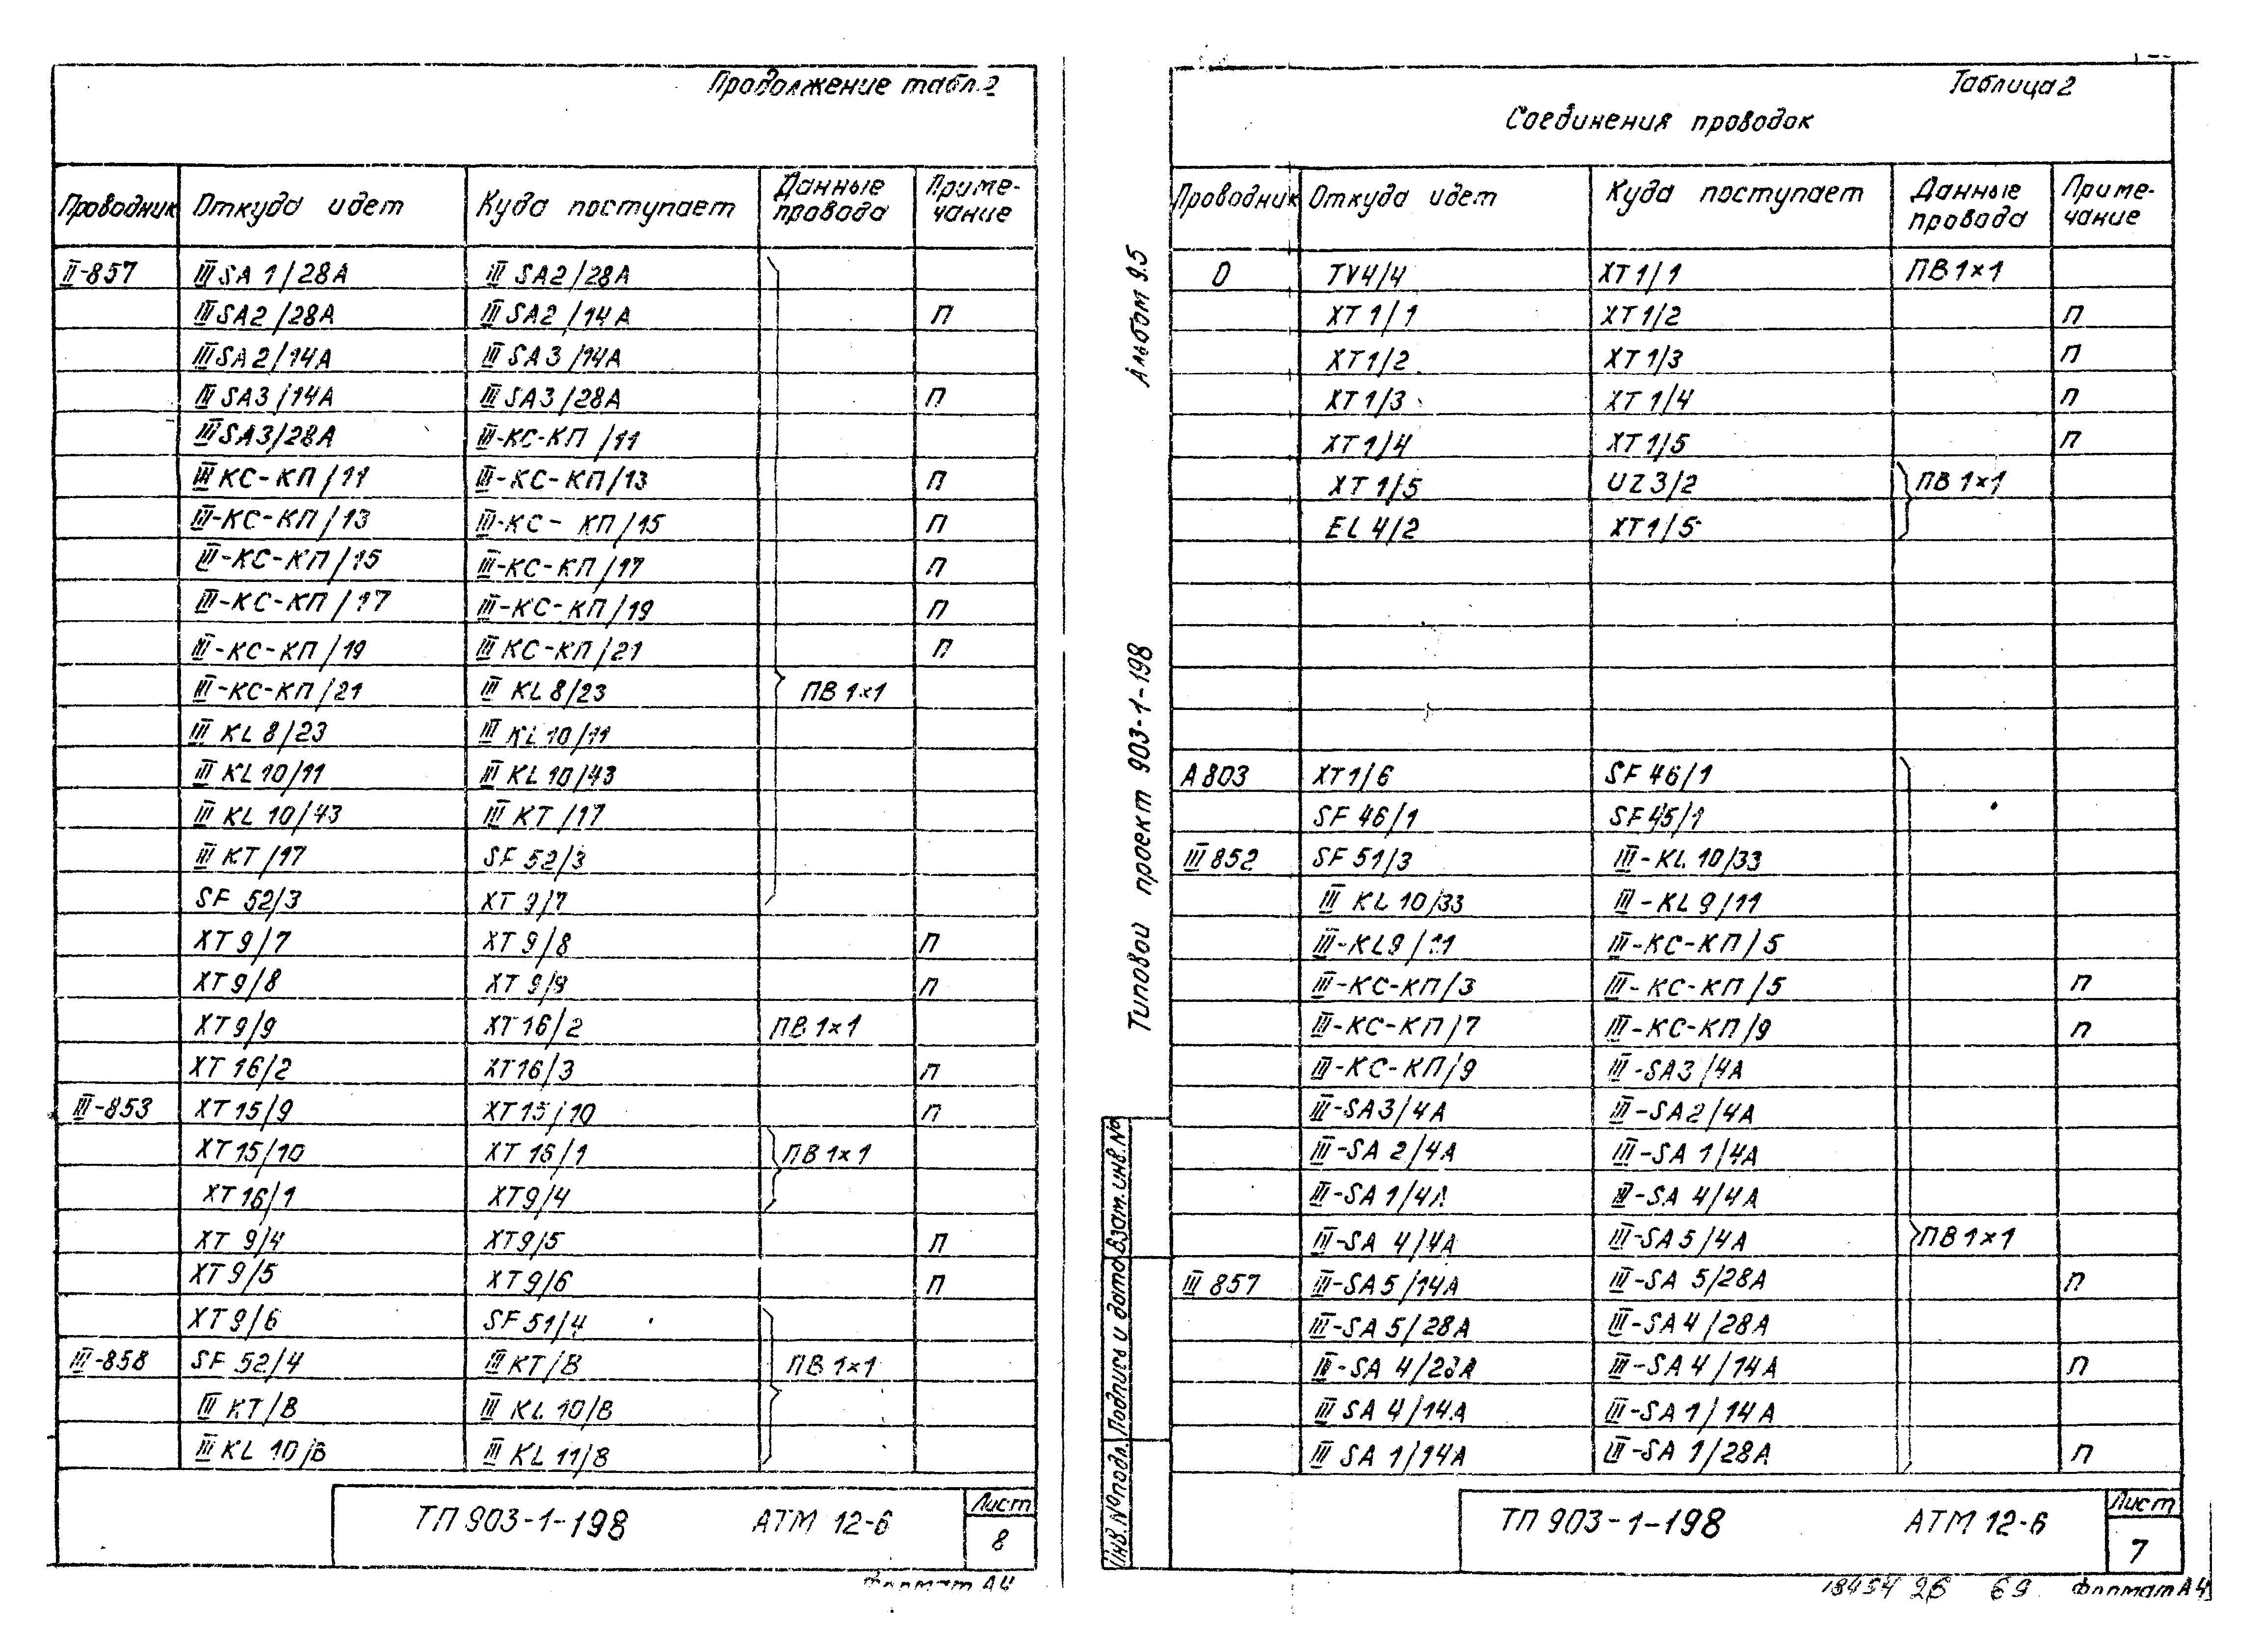 Продолжение табл. 2
Проводник Откуда идет Куда поступает Данные провода Приме-чание
II-857 III SA 1/28А III SA2/28А
III SA2/28А III SA2/14А П
III SA2/14А III SA3/14А
III SA3/14А III SA3/28А П
III SA3/28А III-КС-КП/11
III КС-КП/11 III-КС-КП/13 П
III-КС-КП/13 III-КС-КП/15 П
III-КС-КП/15 III-КС-КП/17 П
III-КС-КП/17 III-КС-КП/19 П
III-КС-КП/19 III КС-КП/21 П
III-КС-КП/21 III KL 8/23 ПВ 1×1
III KL 8/23 III KL 10/11
III KL 10/11 III KL 10/43
III KL 10/43 III КТ/17
III КТ/17 SF 52/3
SF 52/3 ХТ 9/7
ХТ 9/7 ХТ 9/8 П
ХТ 9/8 ХТ 9/9 П
ХТ 9/9 ХТ 16/2 ПВ 1×1
ХТ 16/2 ХТ 16/3 П
III-853 ХТ 15/9 ХТ 15/10 П
ХТ 15/10 ХТ 16/1 ПВ 1×1
ХТ 16/1 ХТ 9/4
ХТ 9/4 ХТ 9/5 П
ХТ 9/5 ХТ 9/6 П
ХТ 9/6 SF 51/4
III-858 SF 52/4 III КТ/В ПВ 1×1
III КТ/В III KL 10/В
III KL 10/В III KL 11/В
ТП 903-1-198 АТМ 12-6 Лист 8
Формат А4
Альбом 9.5
Типовой проект 903-1-198
Инв. № подл. Подпись и дата Взам. инв. №
Таблица 2
Соединения проводок
Проводник Откуда идет Куда поступает Данные провода Приме-чание
0 TV4/4 ХТ 1/1 ПВ 1×1
ХТ 1/1 ХТ 1/2 П
ХТ 1/2 ХТ 1/3 П
ХТ 1/3 ХТ 1/4 П
ХТ 1/4 ХТ 1/5 П
ХТ 1/5 UZ 3/2 ПВ 1×1
EL 4/2 ХТ 1/5
А 803 ХТ 1/6 SF 46/1
SF 46/1 SF 45/1
III 852 SF 51/3 III-KL 10/33
III KL 10/33 III-KL 9/11
III-KL 9/11 III-КС-КП/5
III-КС-КП/3 III-КС-КП/5 П
III-КС-КП/7 III-КС-КП/9 П
III-КС-КП/9 III-SA3/4А
III-SA3/4А III-SA2/4А
III-SA 2/4А III-SA 1/4А
III-SA 1/4А III-SA 4/4А
III-SA 4/4А III-SA5/4А ПВ 1×1
III 857 III-SA5/14А III-SA 5/28А П
III-SA 5/28А III-SA4/28А
III-SA 4/28А III-SA 4/14А П
III SA 4/14А III-SA 1/14А
III SA 1/14А III-SA 1/28А П
ТП 903-1-198 АТМ 12-6 Лист 7
18454 26 69 Формат А4